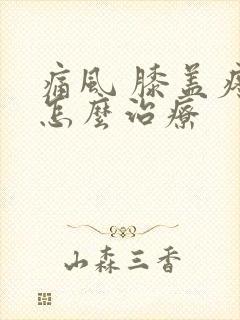 痛风 膝盖疼
怎麼治療
山森三香